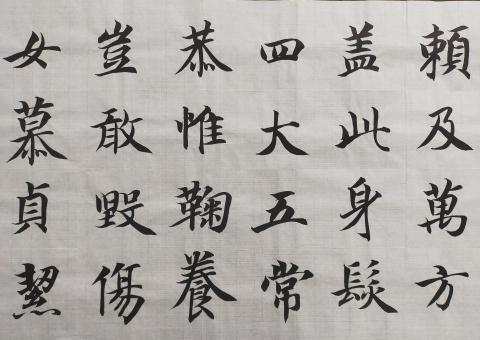 頼及萬方
盖此身髮
四大五常
恭惟鞠養
豈敢毀傷
女慕貞絜